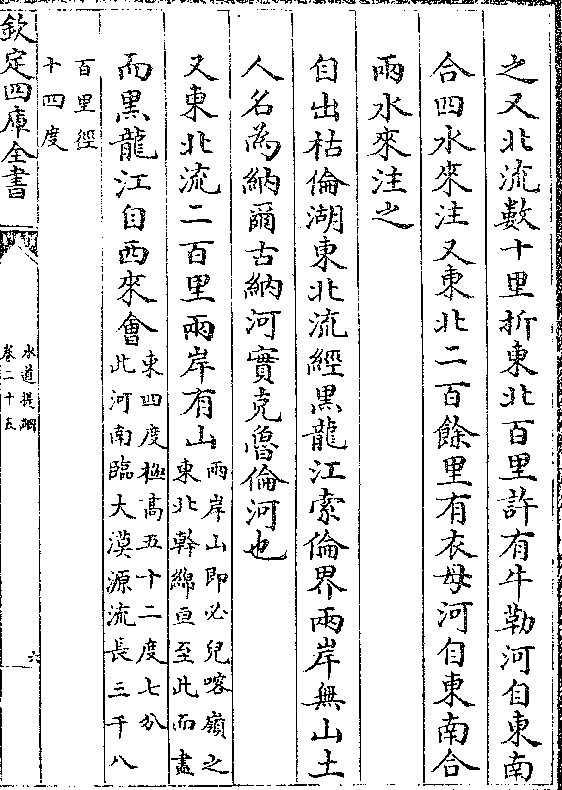 之又北流數十里折東北百里許有牛勒河自東南
合四水來注又東北二百餘里有衣母河自東南合
兩水來注之
自出枯倫湖東北流經黑龍江索倫界兩岸無山土
人名為納爾古納河實克魯倫河也
又東北流二百里兩岸有山兩岸山即必兒喀嶺之
東北幹綿亘至此而盡
而黑龍江自西來會東四度極高五十二度七分
此河南臨大漠源流長三千八
百里徑
十四度
欽定四庫全書
水道提綱
卷二十五
六